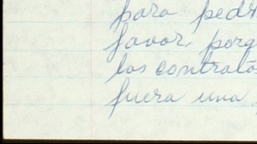 para ped
favor, porq
los contrato
fuera una